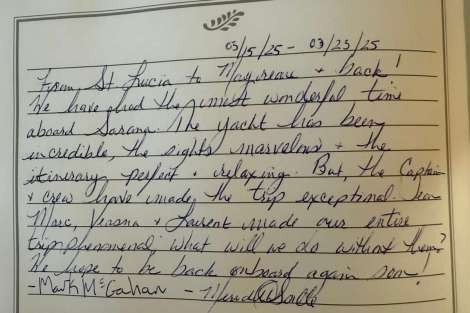 03/15/25 - 03/23/25
From St Lucia to Mayreau + back!
We have had the most wonderful time
aboard Sarana. The yacht has been
incredible, the sights marvelous + the
itinerary perfect + relaxing. But, the Captain
+ crew have made the trip exceptional.
Marc, Vesna + Laurent made our entire
trip phenomenal. What will we do without them?
We hope to be back onboard again soon!
-Mark McGahan -